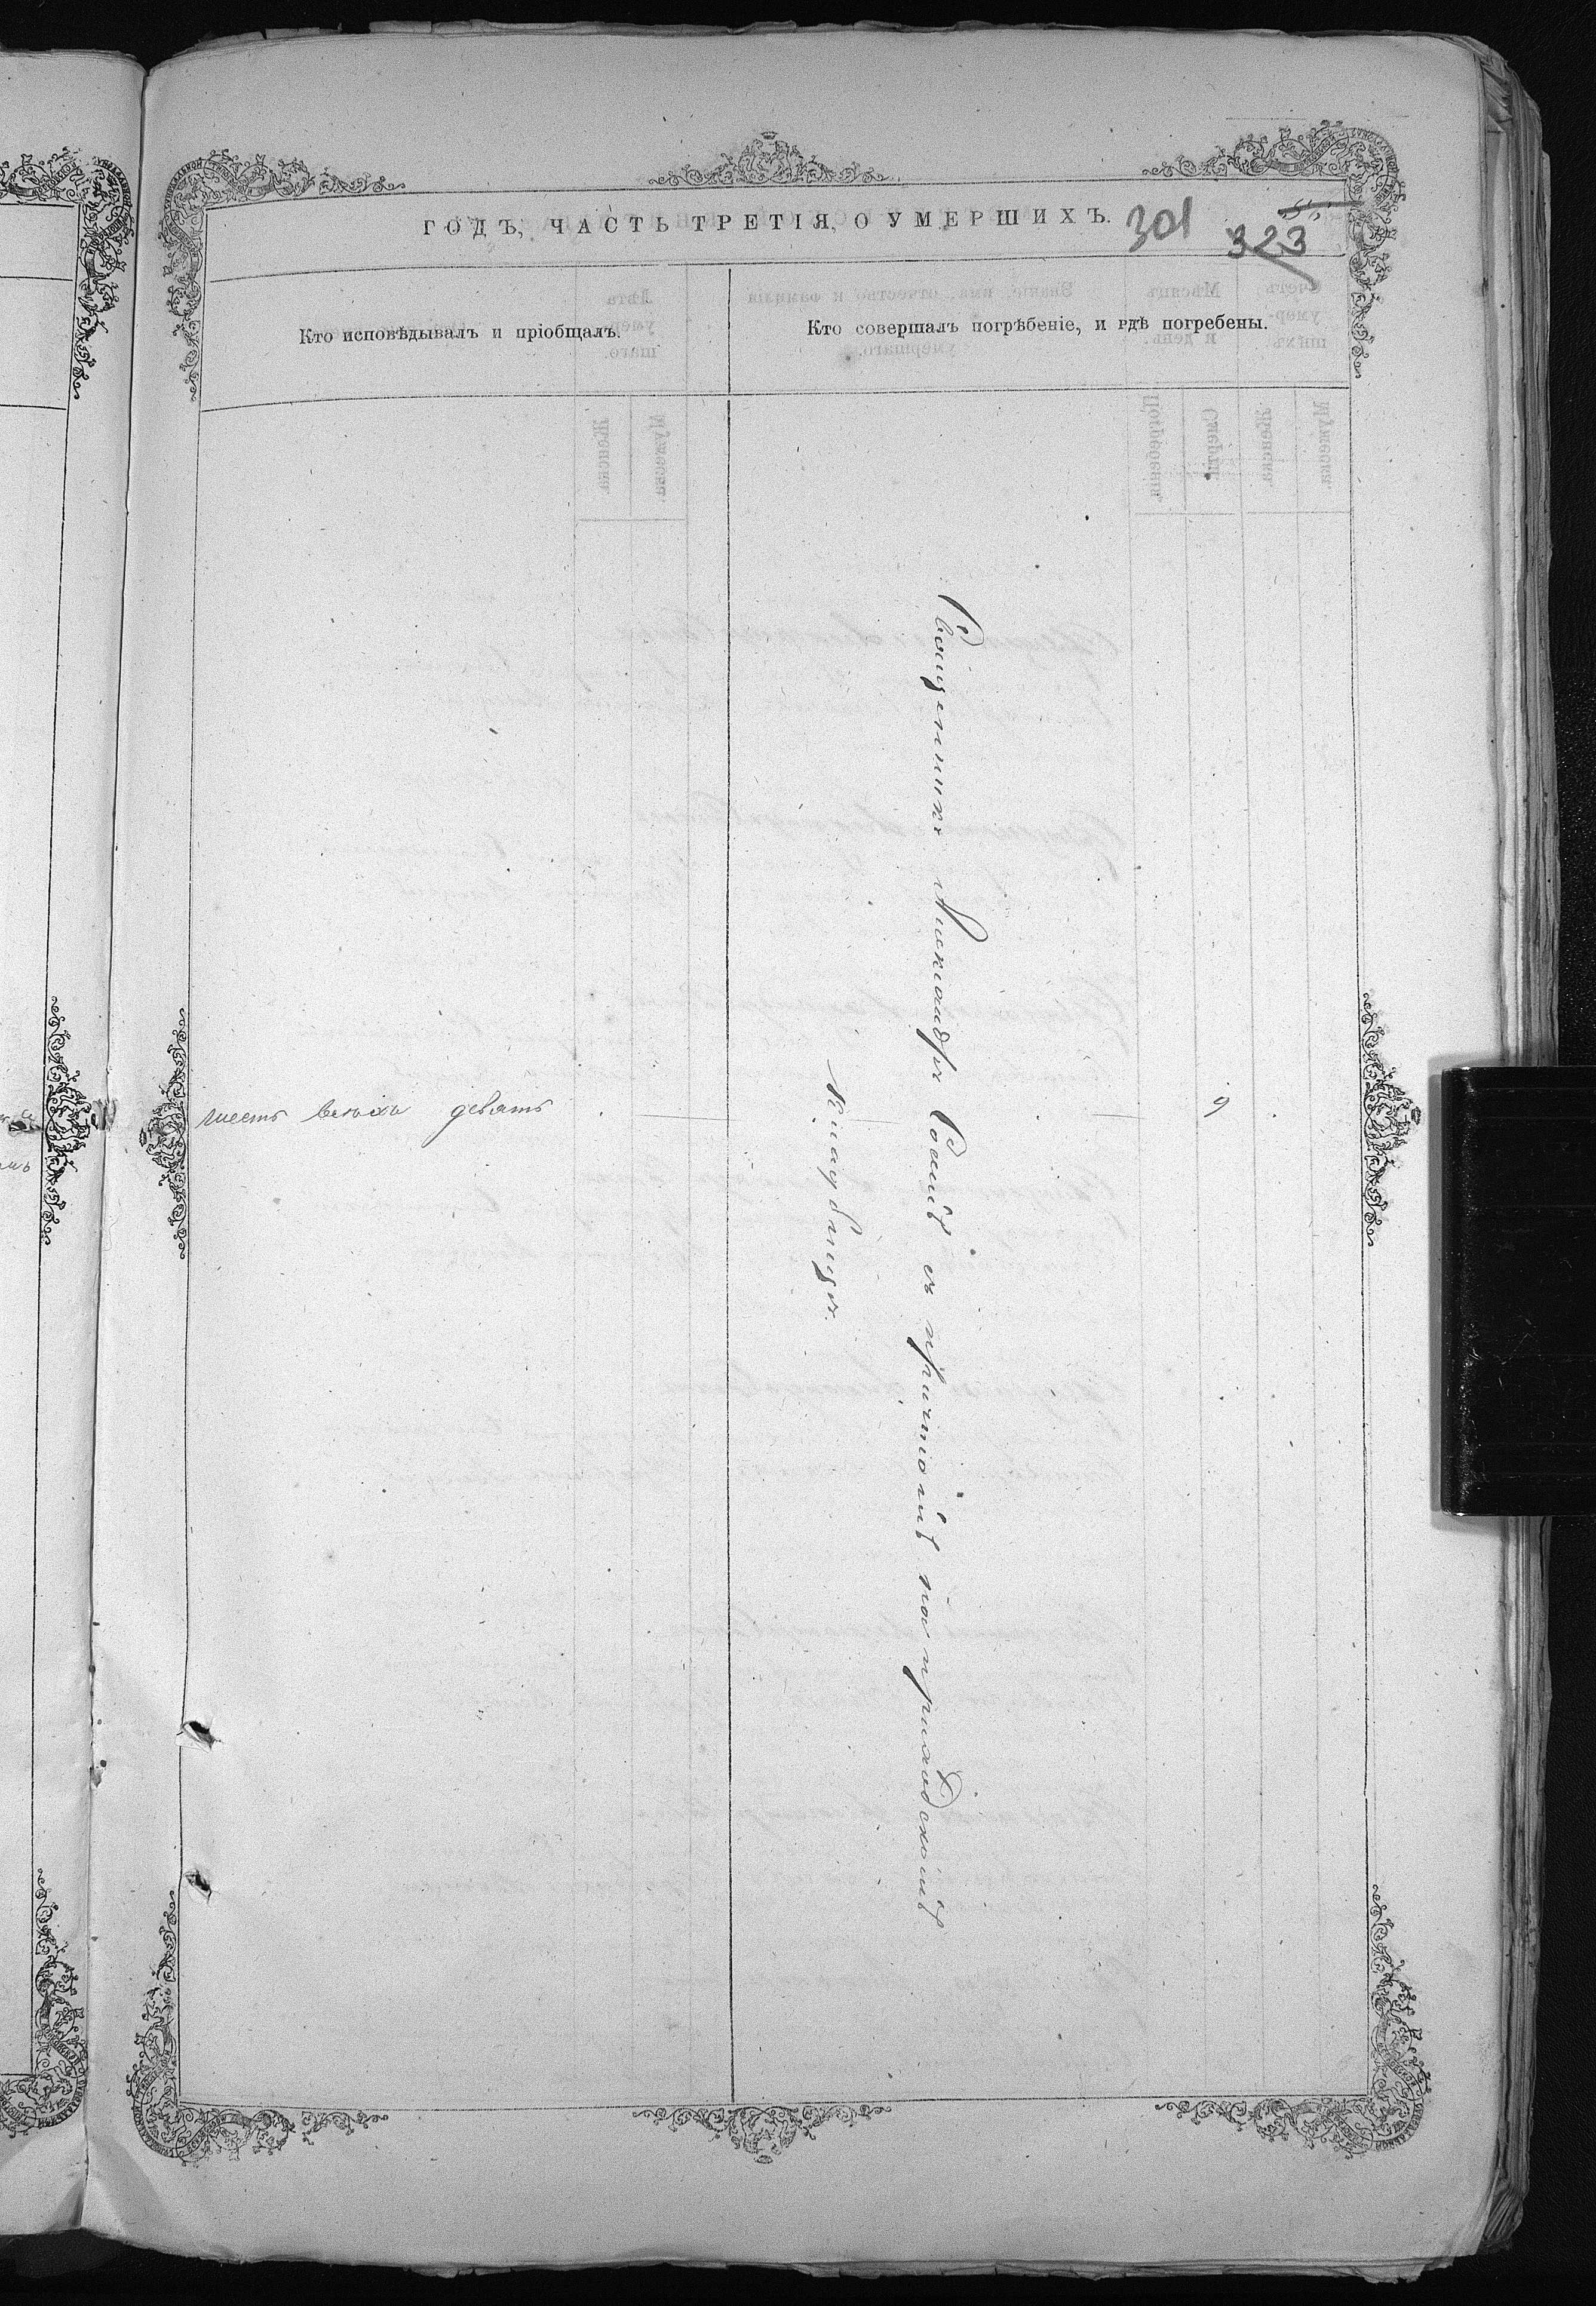 ГОДЪ, ЧАСТЬ ТРЕТІЯ, О УМЕРШИХЪ.
301
323
Кто исповѣдывалъ и пріобщалъ.
Кто совершалъ погрѣбеніе, и гдѣ погребены.
Священникъ Александръ съ причтомъ на приходскомъ
Кладбищѣ.
шесть всѣхъ девять
9